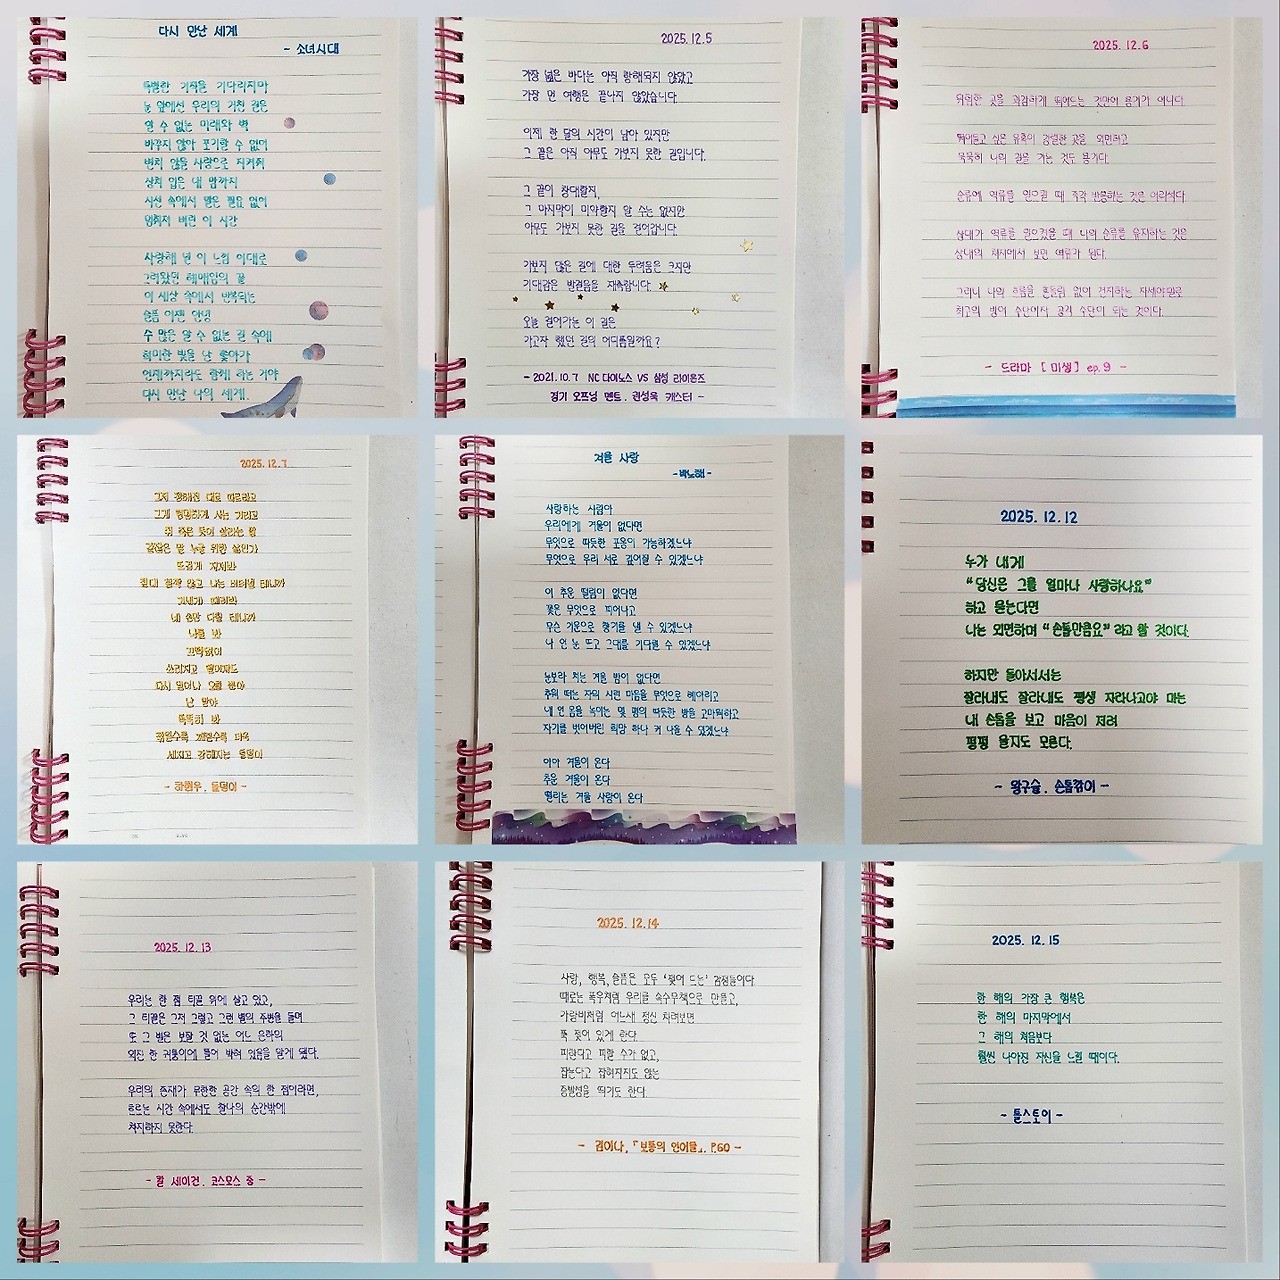 다시 만난 세계
- 소녀시대
특별한 기적을 기다리지마
눈 앞에선 우리의 거친 길은
알 수 없는 미래와 벽
바꾸지 않아 포기할 수 없어
변치 않을 사랑으로 지켜줘
상처 입은 내 맘까지
시선 속에서 말은 필요 없어
멈춰져 버린 이 시간
사랑해 널 이 느낌 이대로
그려왔던 헤매임의 끝
이 세상 속에서 반복되는
슬픔 이젠 안녕
수 많은 알 수 없는 길 속에
희미한 빛을 난 쫓아가
언제까지라도 함께 하는 거야
다시 만난 나의 세계.
2025.12.5
가장 넓은 바다는 아직 항해되지 않았고
가장 먼 여행은 끝나지 않았습니다.
이제 한 달의 시간이 남아 있지만
그 끝은 아직 아무도 가보지 못한 길입니다.
그 끝이 창대할지,
그 마지막이 미약할지 알 수는 없지만
아무도 가보지 못한 길을 걸어갑니다.
가보지 않은 길에 대한 두려움은 크지만
기대감은 발걸음을 재촉합니다.
오늘 걸어가는 이 길은
가고자 했던 길의 어디쯤일까요?
- 2021.10.7 NC 다이노스 VS 삼성 라이온즈
경기 오프닝 멘트. 권성욱 캐스터 -
2025.12.6
위험한 곳을 과감하게 뛰어드는 것만이 용기가 아니다.
뛰어들고 싶은 유혹이 강렬한 곳을 외면하고
묵묵히 나의 길을 가는 것도 용기다.
순류에 역류를 일으킬 때 즉각 반응하는 것은 어리석다.
상대가 역류를 일으켰을 때 나의 순류를 유지하는 것은
상대의 처지에서 보면 역류가 된다.
그러니 나의 흐름을 흔들림 없이 견지하는 자세야말로
최고의 방어 수단이자 공격 수단이 되는 것이다.
- 드라마 [미생] ep.9 -
2025.12.7
그저 정해진 대로 따르라고
그게 현명하게 사는 거라고
쥐 죽은 듯이 살라는 말
같잖은 말 누굴 위한 삶인가
뜨겁게 지져봐
절대 꼼짝 않고 나는 버텨낼 테니까
거세게 때려봐
네 손만 다칠 테니까
나를 봐
끄떡없어
쓰러지고 떨어져도
다시 일어나 오를 뿐야
난 말야
똑똑히 봐
깎일수록 깨질수록 더욱
세지고 강해지는 돌덩이
- 하현우. 돌덩이 -
겨울 사랑
- 박노해 -
사랑하는 사람아
우리에게 겨울이 없다면
무엇으로 따뜻한 포옹이 가능하겠느냐
무엇으로 우리 서로 깊어질 수 있겠느냐
이 추운 떨림이 없다면
꽃은 무엇으로 피어나고
무슨 기운으로 향기를 낼 수 있겠느냐
나 언 눈 뜨고 그대를 기다릴 수 있겠느냐
눈보라 치는 겨울 밤이 없다면
추워 떠는 자의 시린 마음을 무엇으로 헤아리고
내 언 몸을 녹이는 몇 평의 따뜻한 방을 고마워하고
자기를 벗어버린 희망 하나 커 나올 수 있겠느냐
아아 겨울이 온다
추운 겨울이 온다
떨리는 겨울 사랑이 온다
2025. 12. 12
누가 내게
“당신은 그를 얼마나 사랑하나요”
하고 묻는다면
나는 외면하며 “손톱만큼요” 라고 할 것이다.
하지만 돌아서서는
잘라내도 잘라내도 평생 자라나고야 마는
내 손톱을 보고 마음이 저려
펑펑 울지도 모른다.
- 왕구슬. 손톱깎이 -
2025. 12. 13
우리는 한 점 티끌 위에 살고 있고,
그 티끌은 그저 그렇고 그런 별의 주변을 돌며
또 그 별은 보잘 것 없는 어느 은하의
외진 한 귀퉁이에 틀어 박혀 있음을 알게 됐다.
우리의 존재가 무한한 공간 속의 한 점이라면,
흐르는 시간 속에서도 찰나의 순간밖에
차지하지 못한다.
- 칼 세이건. 코스모스 중 -
2025. 12. 14
사랑, 행복, 슬픔은 모두 ‘젖어 드는’ 감정들이다
때로는 폭우처럼 우리를 속수무책으로 만들고,
가랑비처럼 어느새 정신 차려보면
푹 젖어 있게 한다.
피한다고 피할 수가 없고,
잡는다고 잡혀지지도 않는
증발성을 띄기도 한다.
- 김이나, 「보통의 언어들」. P.60 -
2025. 12. 15
한 해의 가장 큰 행복은
한 해의 마지막에서
그 해의 처음보다
훨씬 나아진 자신을 느낄 때이다.
- 톨스토이 -